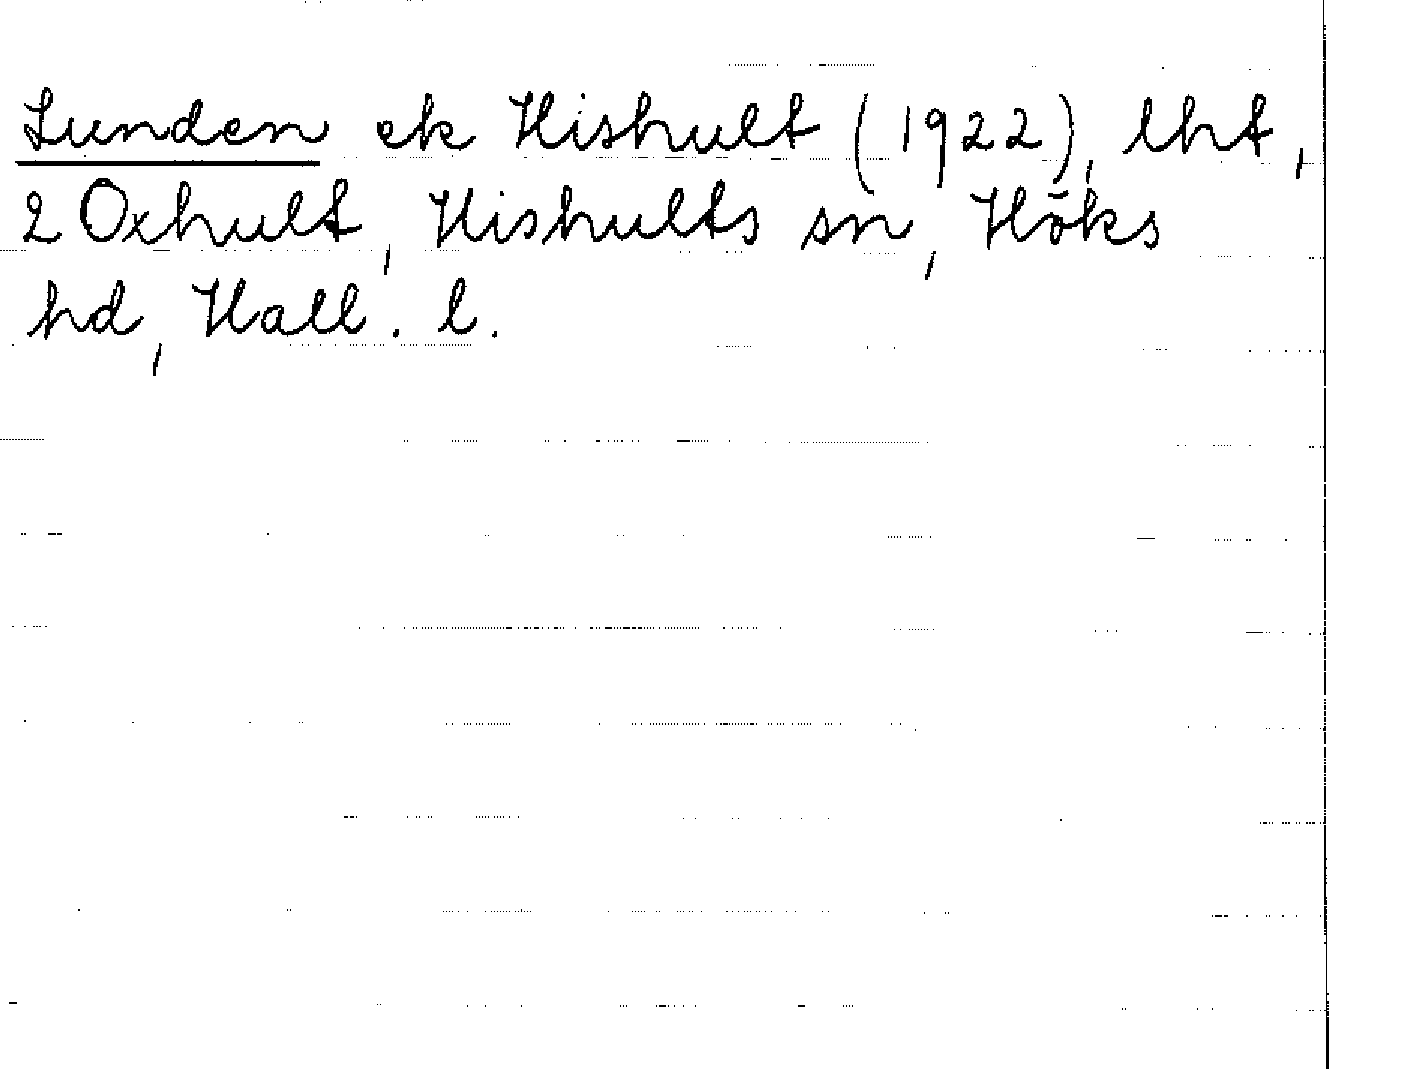 Lunden ek Hishult (1922), lht,
2 Oxhult, Hishults sn, Höks
hd, Hall. l.